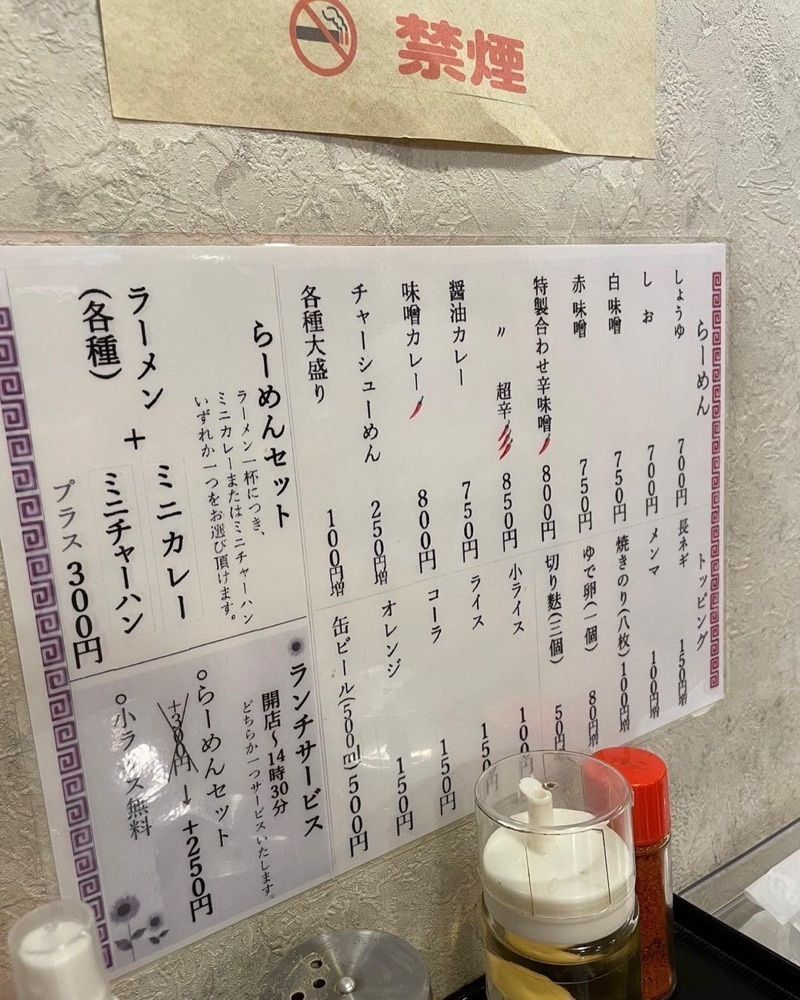 禁煙
らーめん
しょうゆ 700円
しお 700円
白味噌 750円
赤味噌 750円
特製合わせ辛味噌 800円
〃 超辛 850円
醤油カレー 750円
味噌カレー 800円
チャーシューめん 250円増
各種大盛り 100円増
トッピング
長ネギ 150円増
メンマ 100円増
焼きのり(八枚) 100円増
ゆで卵(一個) 80円増
切り麩(三個) 50円
小ライス 100
ライス 150
コーラ 150円
オレンジ 150円
缶ビール(500ml) 500円
らーめんセット
ラーメン一杯につき、
ミニカレーまたはミニチャーハン
いずれか一つをお選び頂けます。
ラーメン(各種) +
ミニカレー
ミニチャーハン
プラス300円
ランチサービス
開店~14時30分
どちらか一つサービスいたします。
○らーめんセット
+300円→+250円
○小ライス無料